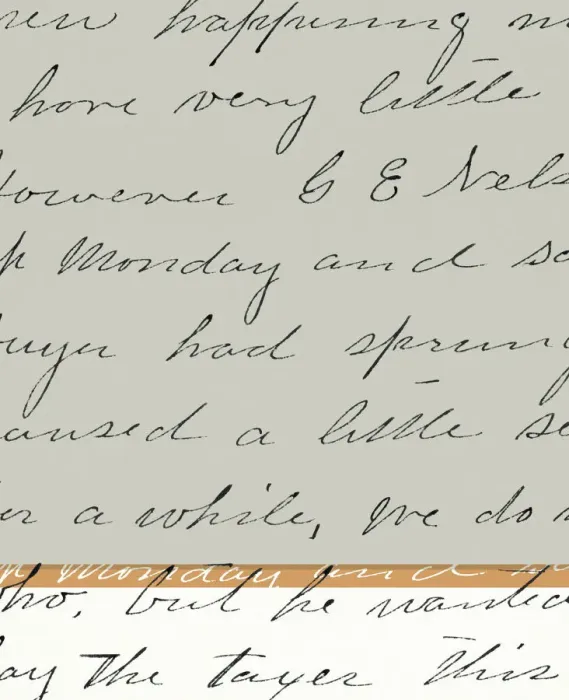 happening
have very little
However G E Nels
Monday and sa
buyer had sprung
caused a little se
er a while, We do
Monday and
who, but he wanted
pay the taxes this